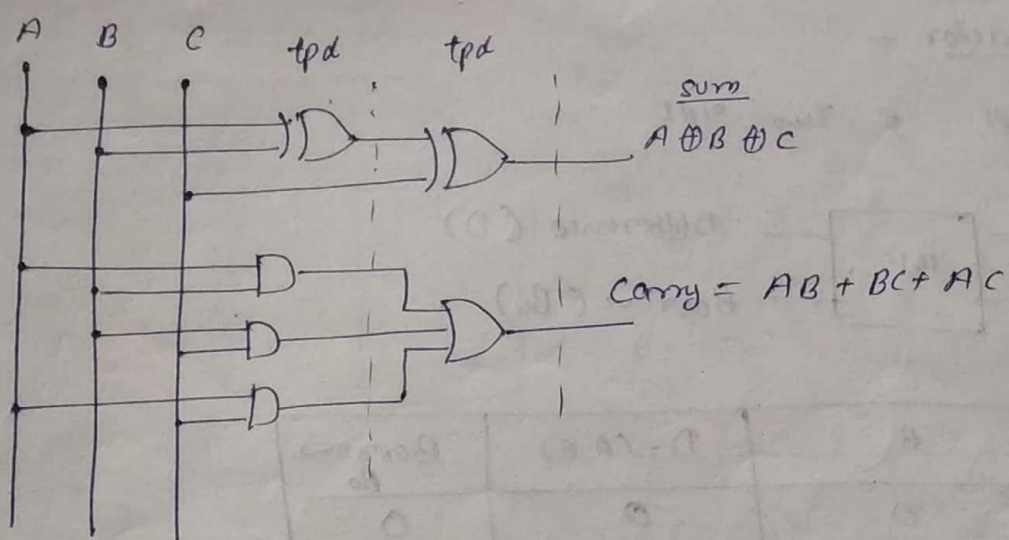 A B C tpd tpd
sum
A ⊕ B ⊕ C
Carry = AB + BC + AC